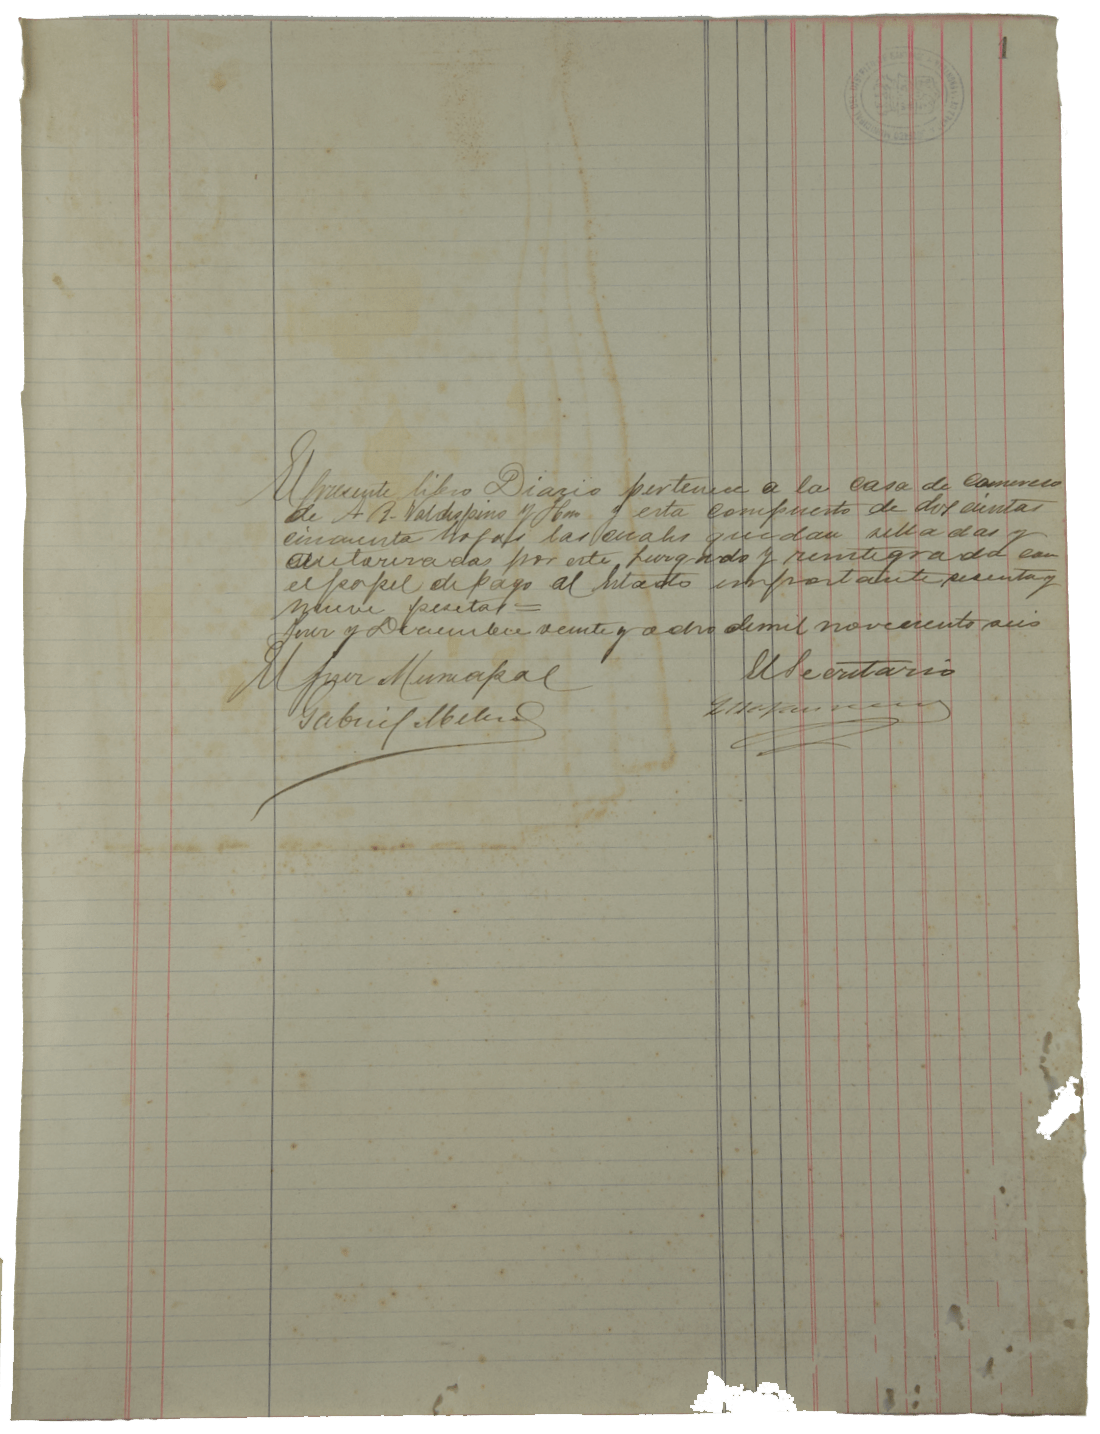 1
El presente libro Diario pertenece a la casa de Comercio
de A R. Valdespino y Hno y esta compuesto de doscientas
cincuenta hojas las cuales quedan selladas y
autorizadas por este Juzgado y reintegrado con
el papel de pago al Estado importante sesenta y
nueve pesetas =
Jerez y Diciembre veinte y ocho de mil novecientos seis
El Juez Municipal El Secretario
Gabriel